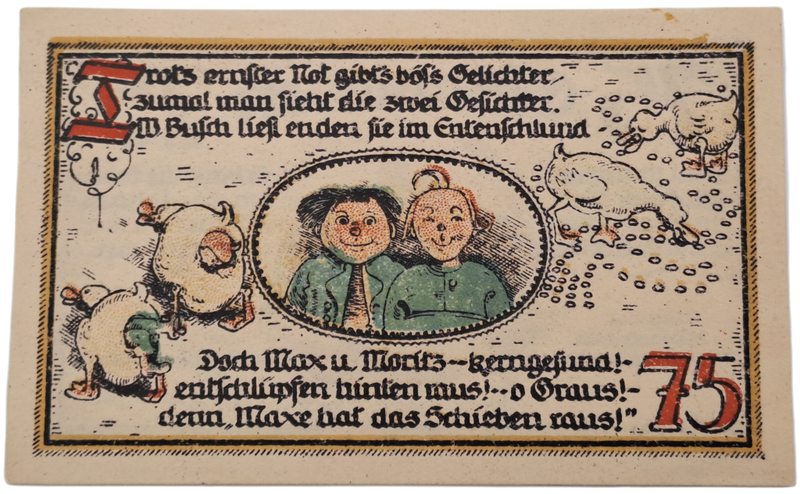 Trotz ernster Not gibt's bös's Gelichter
zumal man sieht die zwei Gesichter.
W. Busch ließ enden sie im Entenschlund -
Doch Max u. Moritz - kerngesund! -
entschlüpfen hinten raus! - o Graus! -
denn „Maxe hat das Schieben raus!"
75